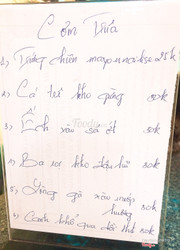 Cơm Trưa
1) Trứng chiên mayonnaise 25k
2) Cá trê kho gừng 30k
3) Ếch xào sả ớt 30k
4) Ba rọi kho đậu hũ 30k
5) Lòng gà xào mướp hương 30k
6) Canh khổ qua dồn thịt 30k
Foody